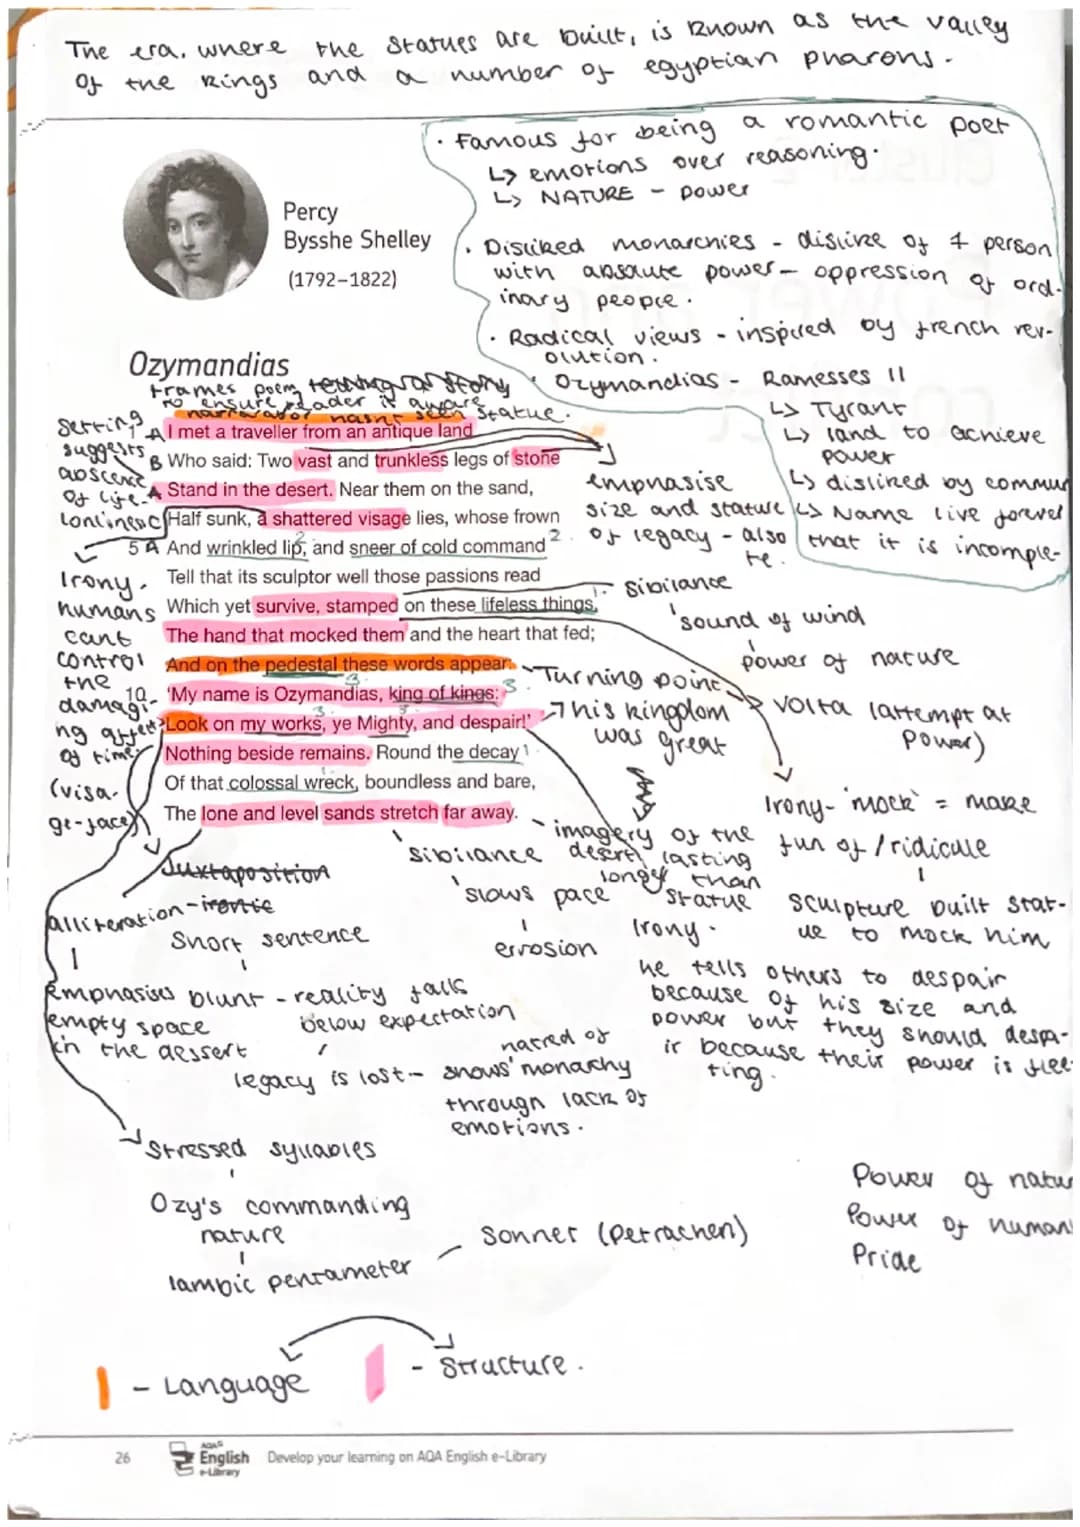 The era, where the statues are built, is known as the valley
of the kings and a number of egyptian pharons.
• Famous for being a romantic poet
↳ emotions over reasoning.
↳ NATURE - power
• Disliked monarchies - dislike of 1 person
with absolute power - oppression of ord-
inary people.
• Radical views - inspired by french rev-
olution.
• Ozymandias - Ramesses II
↳ Tyrant
↳ land to achieve
power
↳ disliked by commun
↳ Name live forever
Percy
Bysshe Shelley
(1792–1822)
Ozymandias
frames poem telling a story
to ensure reader is aware
narrarator hasnt seen statue.
A I met a traveller from an antique land
B Who said: Two vast and trunkless legs of stone
A Stand in the desert. Near them on the sand,
C Half sunk, a shattered visage lies, whose frown
5 A And wrinkled lip, and sneer of cold command
Tell that its sculptor well those passions read
Which yet survive, stamped on these lifeless things,
The hand that mocked them and the heart that fed;
And on the pedestal these words appear:
10 'My name is Ozymandias, king of kings:
Look on my works, ye Mighty, and despair!'
Nothing beside remains. Round the decay
Of that colossal wreck, boundless and bare,
The lone and level sands stretch far away.
Setting
suggests
abscence
of life.
lonliness
Irony.
humans
cant
control
the
damagi-
ng affect
of time
(visa-
ge-face)
emphasise
size and stature
of legacy - also that it is incomple-
te.
sibilance
'sound of wind
power of nature
Turning point
volta (attempt at
power)
his kingdom
was great
Irony- 'mock' = make
fun of / ridicule
sculpture built stat-
ue to mock him
imagery of the
desert lasting
longer than
statue
Irony.
he tells others to despair
because of his size and
power but they should despa-
ir because their power is flee-
ting.
sibilance
'slows pace
errosion
Juxtaposition
alliteration - ironic
Emphasises
empty space
in the dessert
Short sentence
blunt - reality falls
below expectation
legacy is lost - shows
hatred of
monarchy
through lack of
emotions.
Stressed syllables
Ozy's commanding
nature
Iambic pentameter
Sonner (Petrachen)
Power of natu
Power of human
Pride
- Language
- Structure.
26
AQA
English
e-Library
Develop your learning on AQA English e-Library